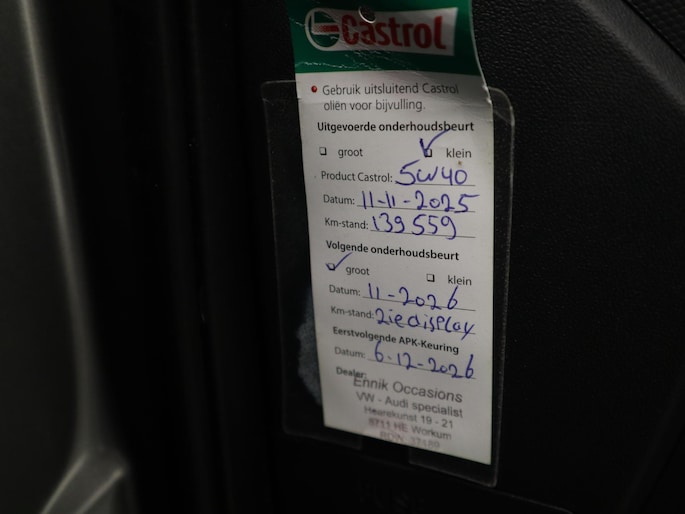 Castrol
Gebruik uitsluitend Castrol
oliën voor bijvulling.
Uitgevoerde onderhoudsbeurt
groot klein
Product Castrol: 5W40
Datum: 11-11-2025
Km-stand: 139559
Volgende onderhoudsbeurt
groot klein
Datum: 11-2026
Km-stand: Ziedisplay
Eerstvolgende APK-Keuring
Datum: 6-12-2026
Dealer:
Ennik Occasions
VW - Audi specialist
Heerekunst 19 - 21
8711 HE Workum